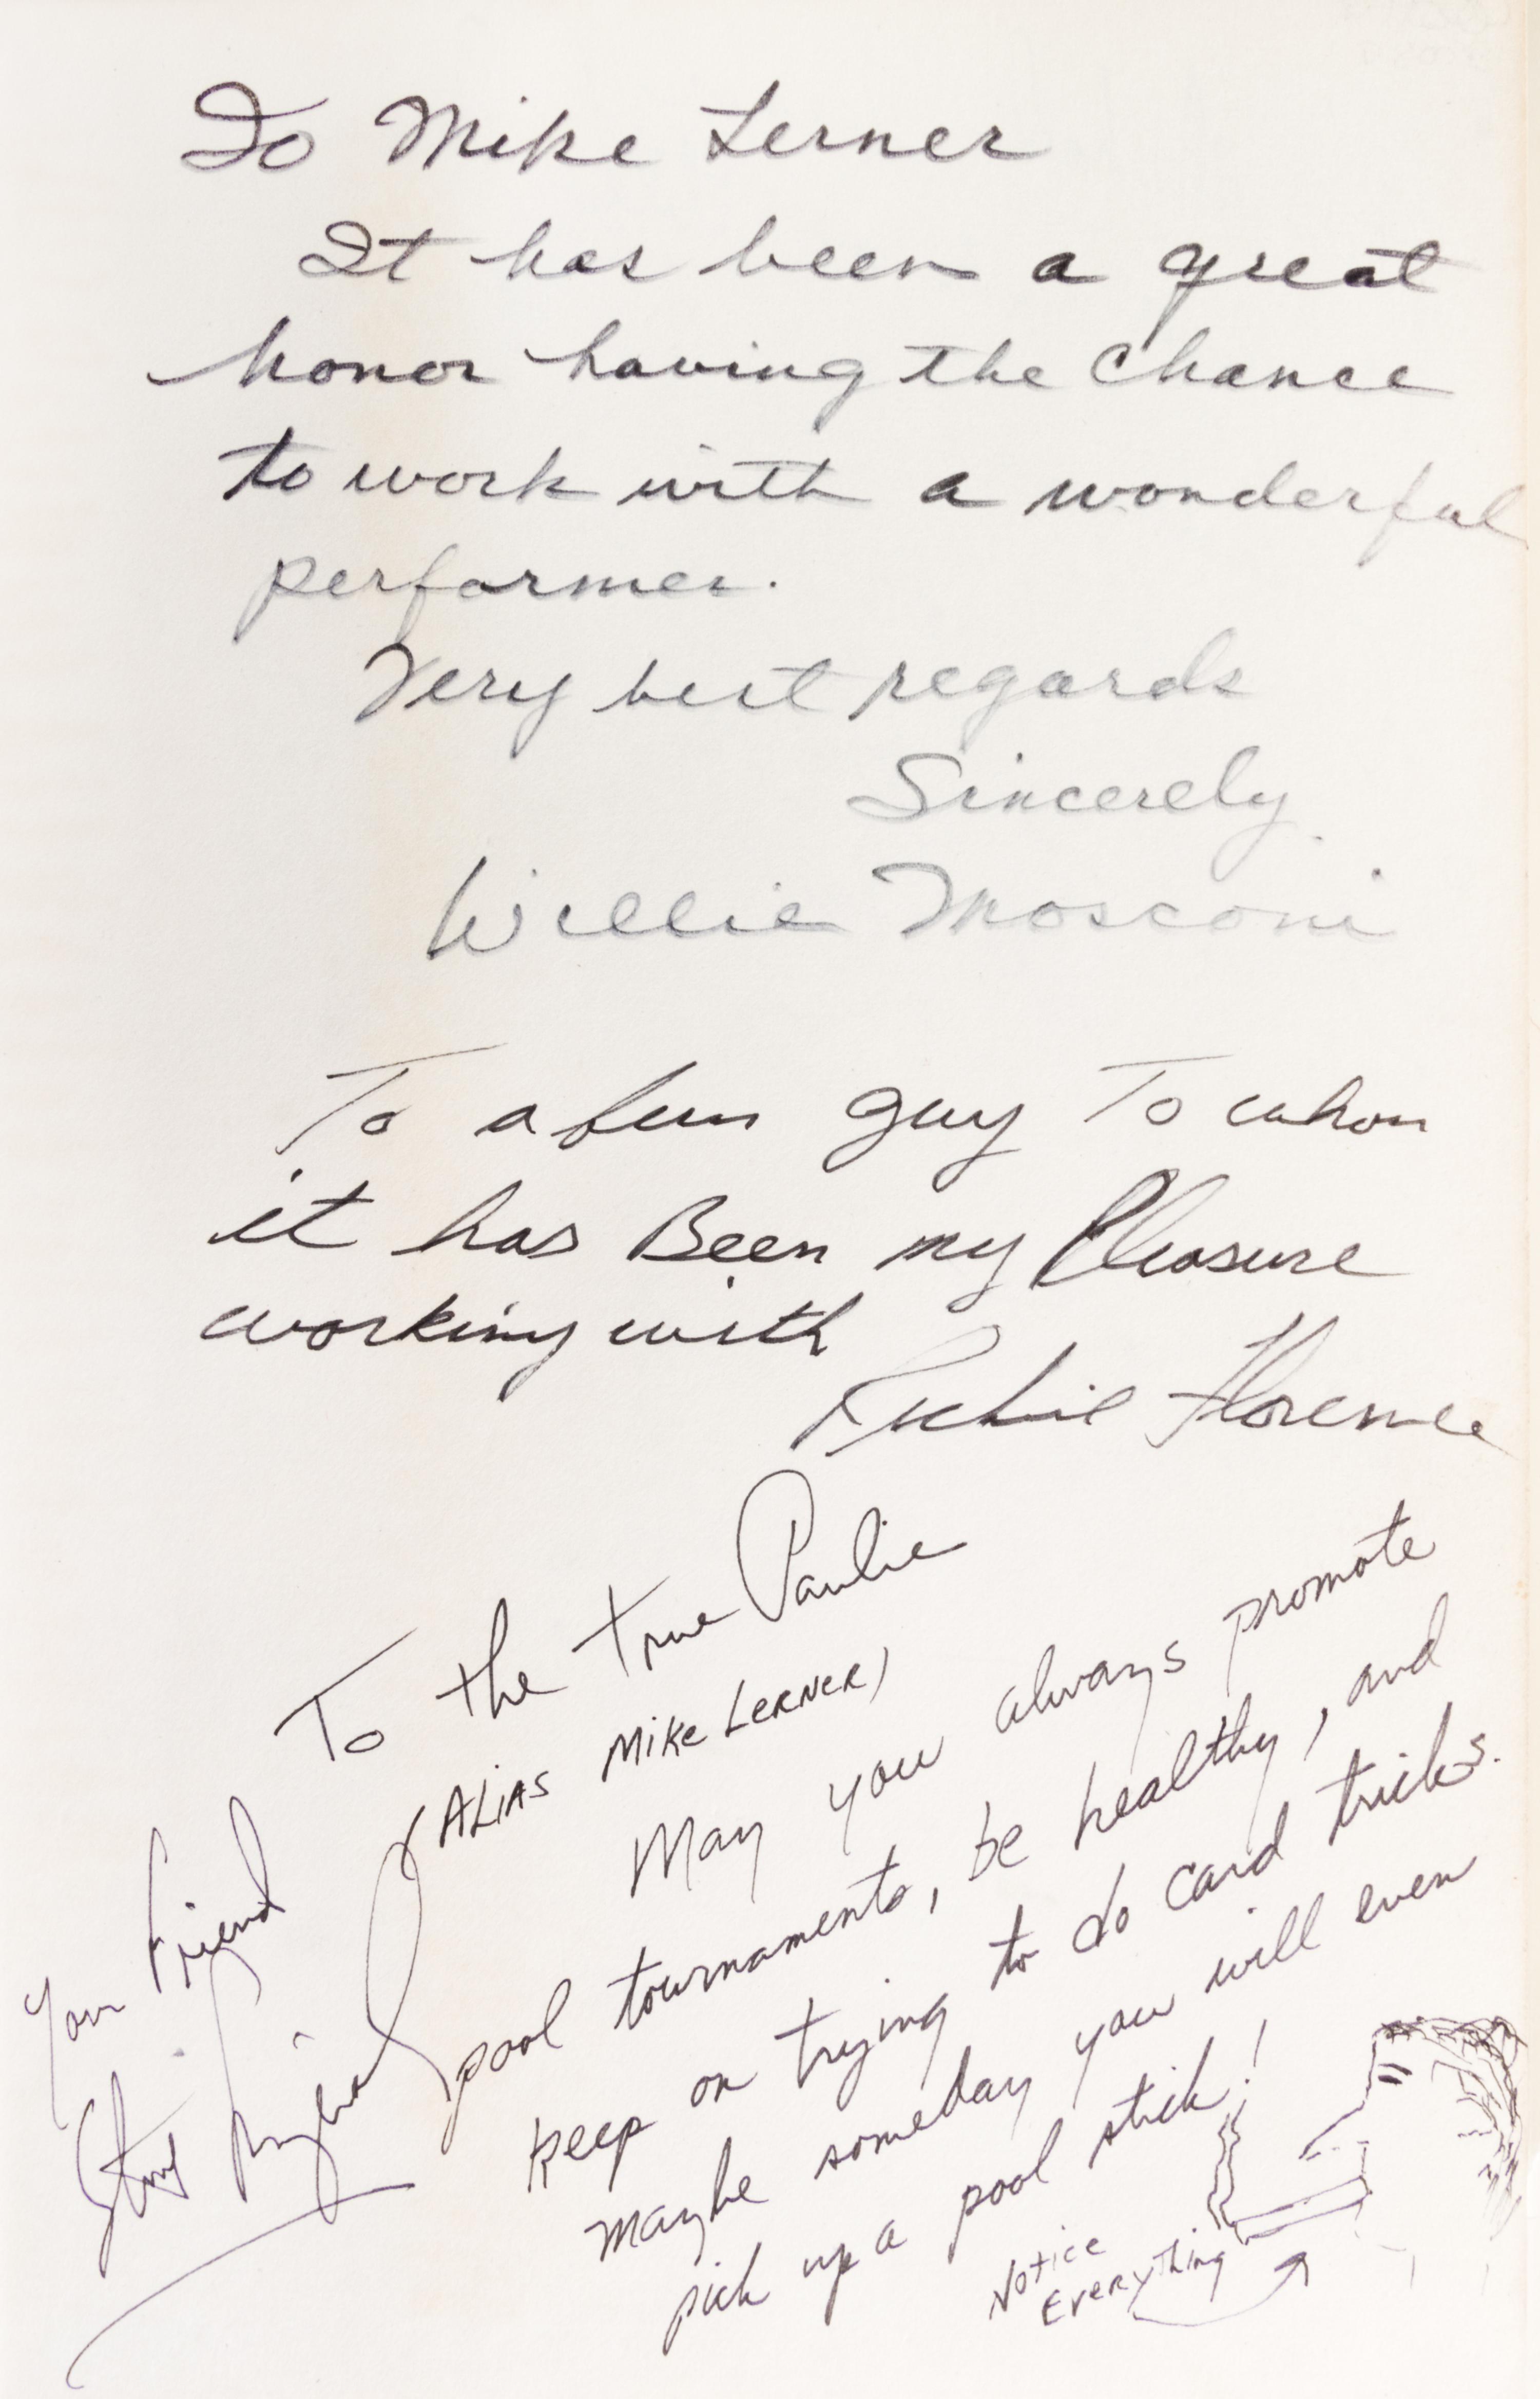 To Mike Lerner
It has been a great
honor having the chance
to work with a wonderful
performer.
Very best regards
Sincerely
Willie Mosconi
To a fun guy To whom
it has Been my Pleasure
working with
Richie Florence
To the true Paulie
(ALIAS Mike Lerner)
May you always promote
pool tournaments, be healthy, and
keep on trying to do card tricks.
Maybe someday you will even
pick up a pool stick!
Notice
Everything
Your Friend